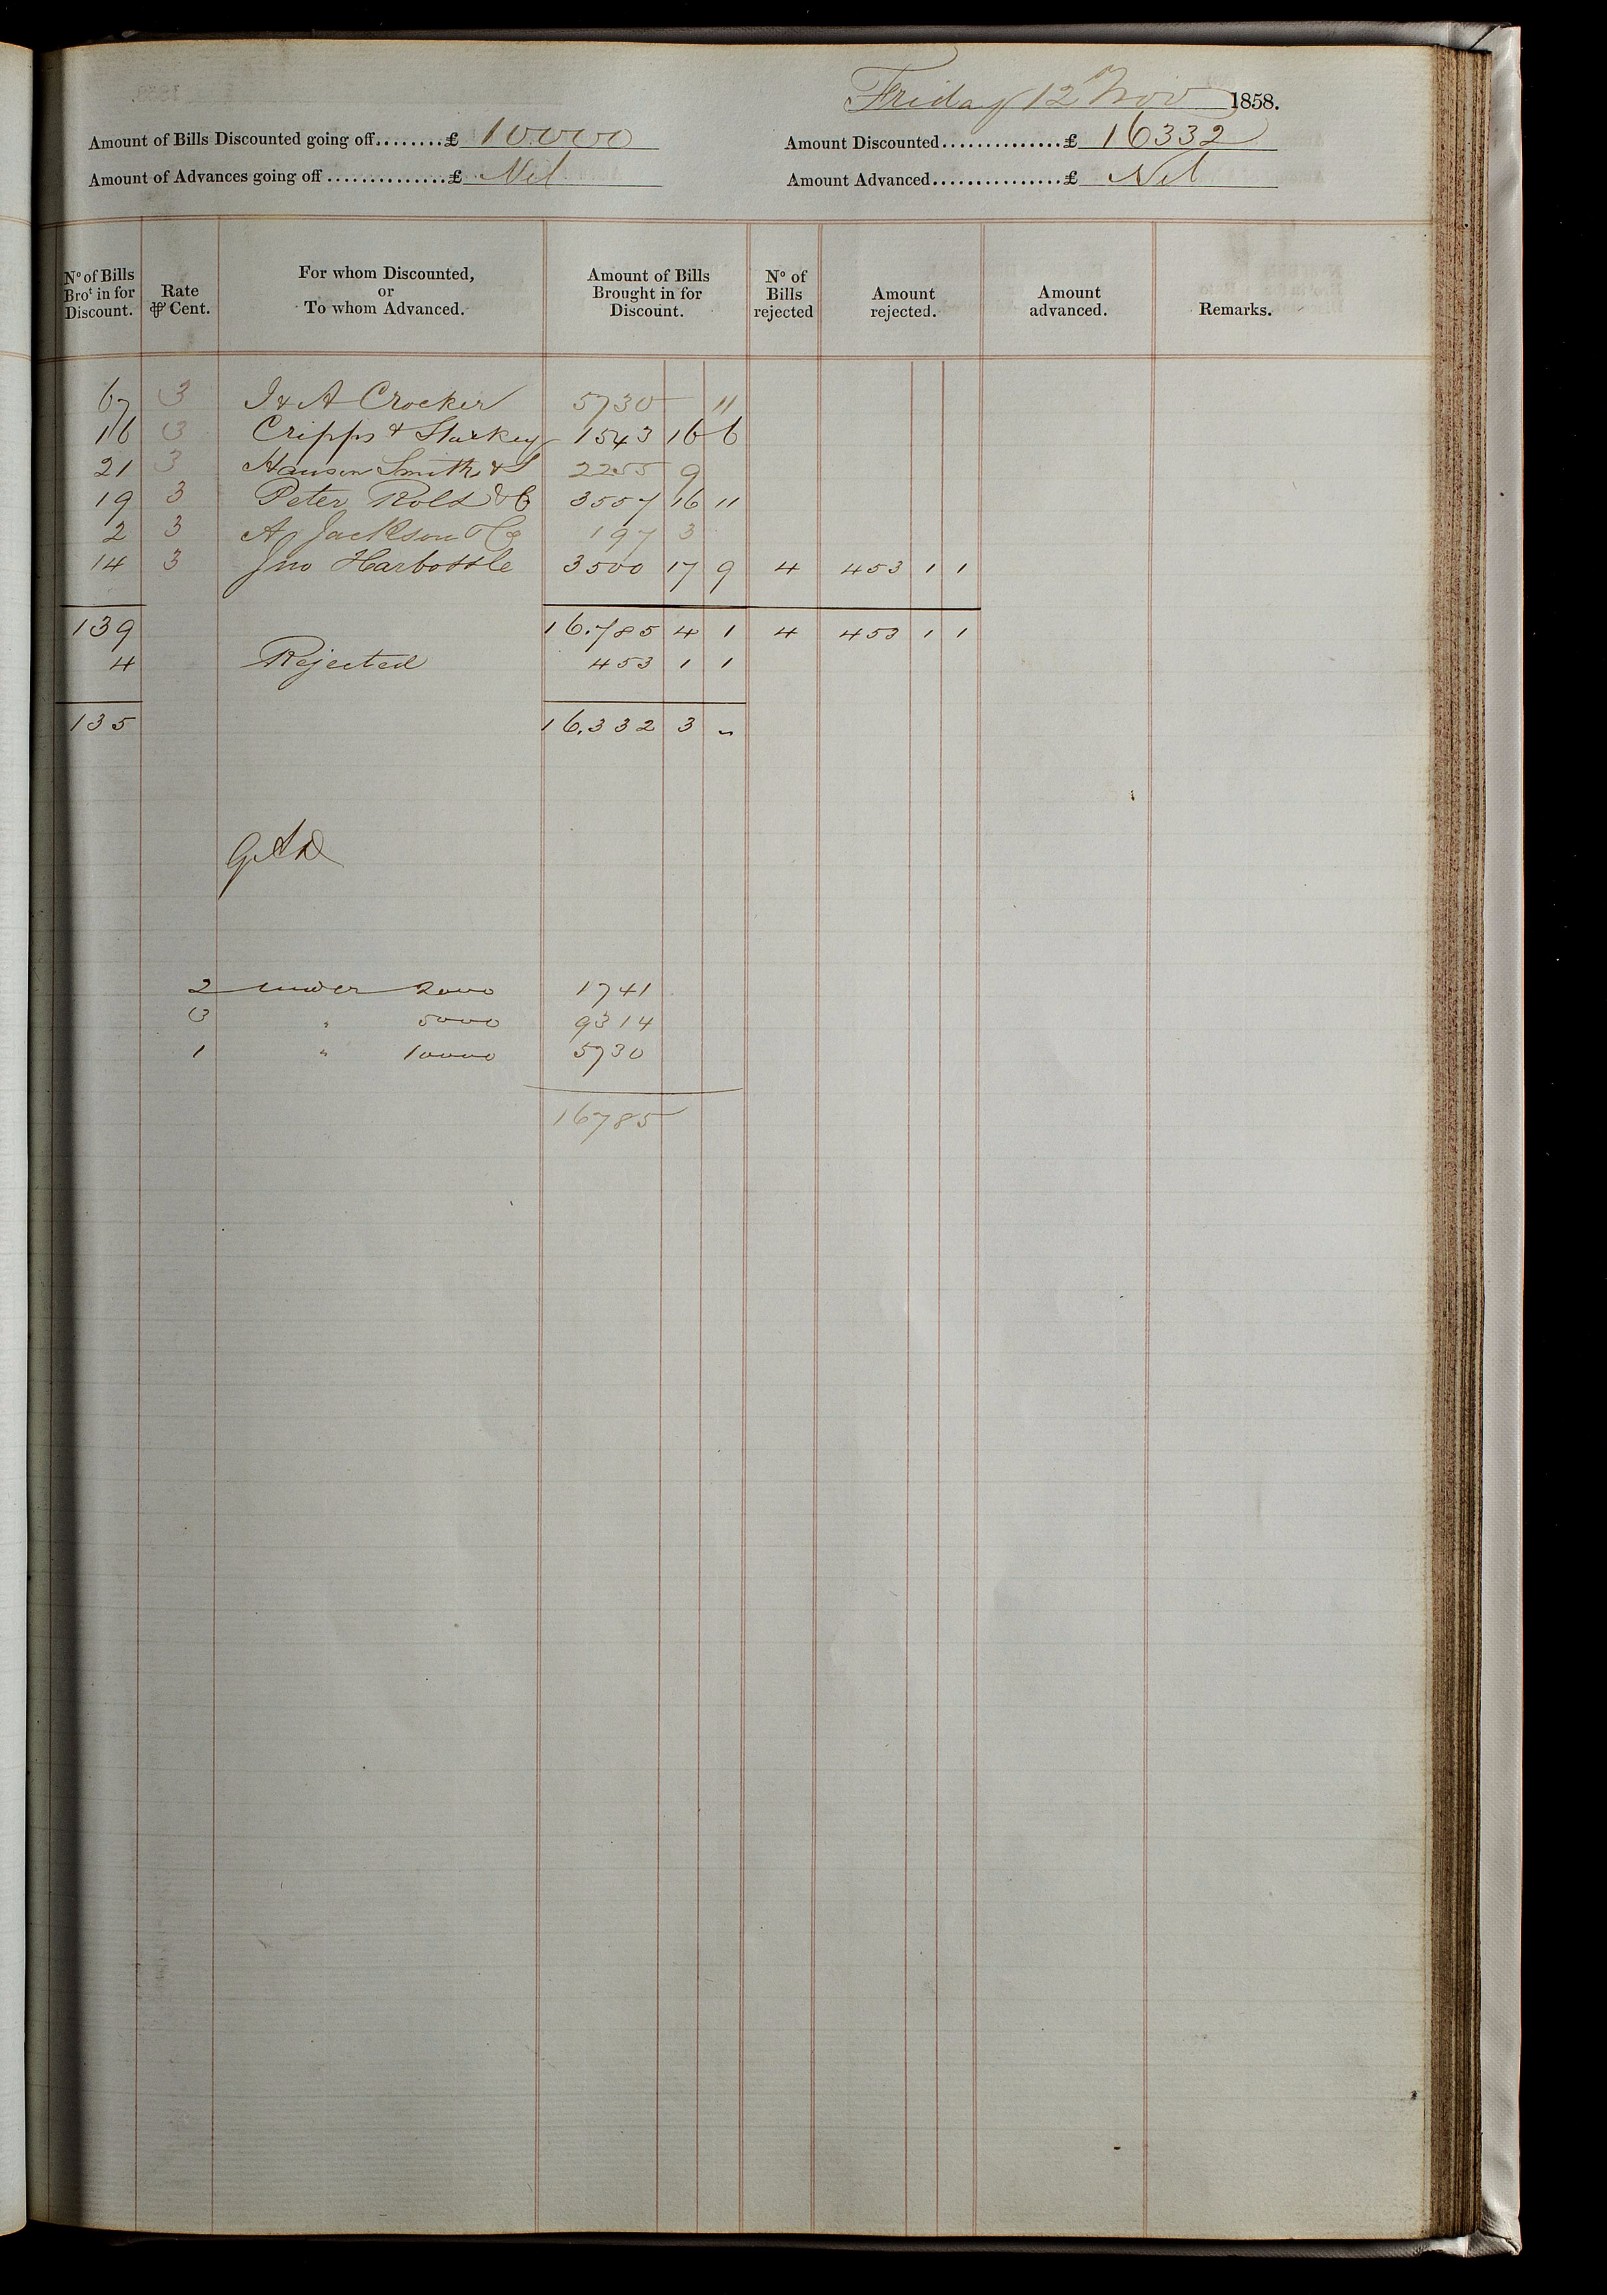 Friday 12 Nov 1858.
Amount of Bills Discounted going off........£ 10000 Amount Discounted..............£ 16332
Amount of Advances going off...............£ Nil Amount Advanced................£ Nil
No of Bills Brot in for Discount. Rate ⅌ Cent. For whom Discounted, or To whom Advanced. Amount of Bills Brought in for Discount. No of Bills rejected Amount rejected. Amount advanced. Remarks.
67 3 J & A Crocker 5730 " 11
16 3 Cripps & Starkey 1543 16 6
21 3 Hanson Smith & 2255 9
19 3 Peter Rolt & C 3557 16 11
2 3 A Jackson & Co 197 3
14 3 Jno Harbottle 3500 17 9 4 453 1 1
139 16.785 4 1 4 453 1 1
4 Rejected 453 1 1
135 16.332 3 "
2 under 2000 1741
3 " 5000 9314
1 " 10000 5730
16785